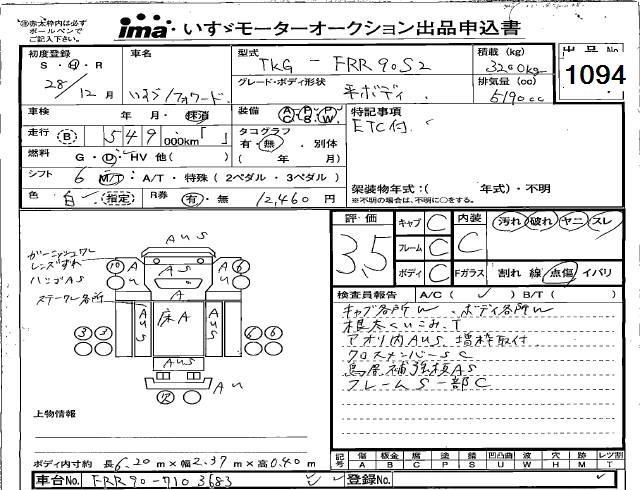 ※赤太枠内は必ず
ボールペンで
ご記入下さい。
ima いすゞモーターオークション出品申込書
初度登録
S・H・R
28/12月
車名
いすゞ/フォワード
型式
TKG-FRR90S2
グレード・ボディ形状
平ボディ
積載 (kg)
3200kg
排気量 (cc)
5190cc
出品No
1094
車検 年・月・抹消
装備 A/C P/S A/B P/W
特記事項
ETC付
走行 (B) 549,000km「 」
タコグラフ
有・無・別体
( 年 月)
燃料 G・D・HV 他( )
シフト 6 M/T・A/T・特殊(2ペダル・3ペダル)
色 白 (指定) R券 有・無 12,460円
架装物年式:( 年式)・不明
※不明の場合は、不明に○をする。
評価
3.5
キャブ C
フレーム C
ボディ C
内装 C
汚れ 破れ ヤニ スレ
Fガラス 割れ 線 点傷 イバリ
検査員報告 A/C( ✓ ) B/T( )
キャブ各所W.ボディ各所W
根太くいこみ.T
アオリ内AUS 増枠取付
クロスメンバーSC
鳥居補強板AS
フレームS一部C
AUS
ガーニッシュワレ
レンズずれ
バンゴAS
ステーワレ各所
10
A
U
AS
A
U
6
A
AUS
床A
AUS
3 3
6 6
AUS
AU
上物情報
ボディ内寸約 長6.20m×幅2.37m×高0.40m
記号 傷 板金 腐 塗 錆 凹凸曲 波 穴 跡 レツ割
A B C P S U W H M T
車台No FRR90-7103683
登録No.